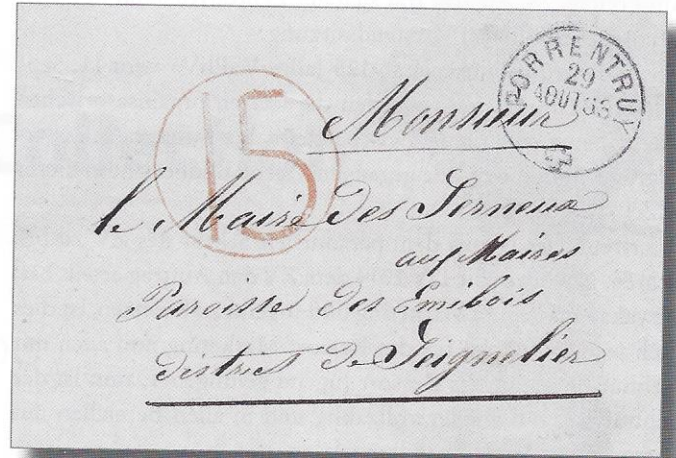 PORRENTRUY
29
AOUT 65
15
Monsieur
le Maire des
aux Maires
Paroisse des Emibois
district de Seignelier